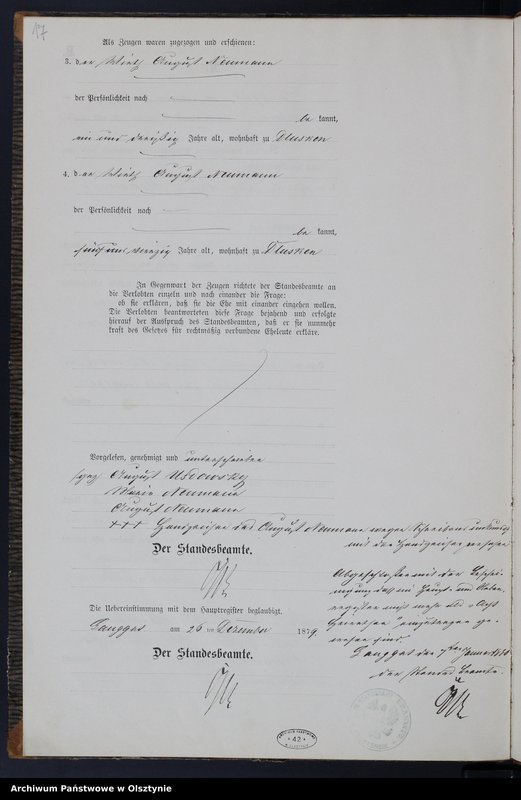 17
Als Zeugen waren zugezogen und erschienen:
3. der Wirth August Neumann
der Persönlichkeit nach
be kannt,
ein und dreißig Jahre alt, wohnhaft zu Dlusken
4. der Wirth August Neumann
der Persönlichkeit nach
be kannt,
fünf und vierzig Jahre alt, wohnhaft zu Dlusken
In Gegenwart der Zeugen richtete der Standesbeamte an
die Verlobten einzeln und nach einander die Frage:
ob sie erklären, daß sie die Ehe mit einander eingehen wollen.
Die Verlobten beantworteten diese Frage bejahend und erfolgte
hierauf der Ausspruch des Standesbeamten, daß er sie nunmehr
kraft des Gesetzes für rechtmäßig verbundene Eheleute erkläre.
Vorgelesen, genehmigt und unterschrieben
gez August
Marie Neumann
August Neumann
+++ Handzeichen des August Neumann wegen Schreibens unkundig
mit der Handzeichen versehen
Der Standesbeamte.
Abgeschlossen mit der Beschei-
nigung daß im Haupt- und Neben-
register nicht mehr als
Heirathen einzutragen ge-
wesen sind.
Die Uebereinstimmung mit dem Hauptregister beglaubigt.
am 26 ten Dezember 1879
den Januar
der Standesbeamte.
Der Standesbeamte.
ARCHIWUM PAŃSTWOWE
42
W OLSZTYNIE
Archiwum Państwowe w Olsztynie